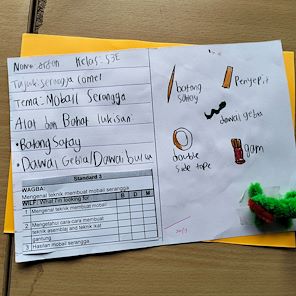 Nama: ardan Kelas: S3E
Tajuk: serangga comel
Tema: Mobail Serangga
Alat dan Bahat lukisan
•BatangSatay
•Dawai Gebu/Dawai bulu
Standard 3
WAGBA:
Mengenal teknik membuat mobail serangga
WILF: What I'm looking for B D M
1 Mengenal teknik membuat mobail
2 Mengetahui cara-cara membuat teknik asemblaj and teknik ikat gantung
3 Hasilan mobail serangga
batang
satay
Penyepit
dawai gebu
double
side tape
gam